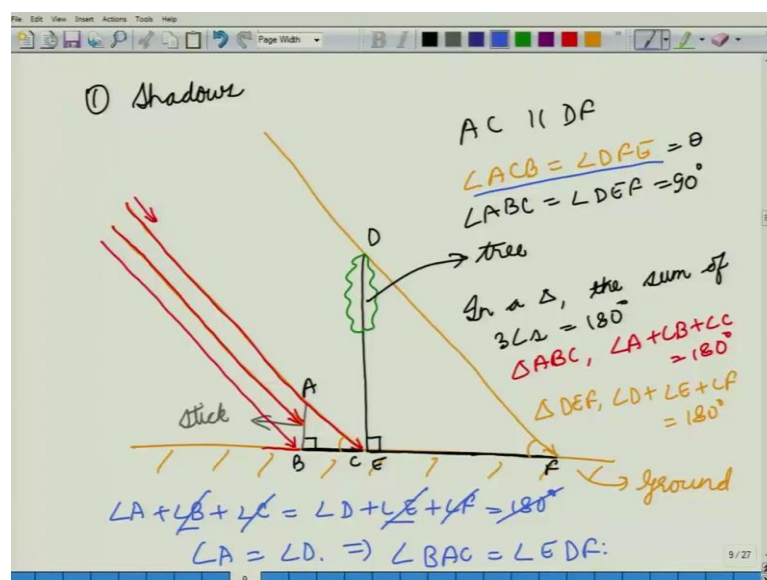 File Edit View Insert Actions Tools Help
Page Width
B I
① Shadows
AC || DF
∠ACB = ∠DFE = θ
∠ABC = ∠DEF = 90°
D
tree
In a Δ, the sum of
3∠s = 180°
ΔABC, ∠A+∠B+∠C
= 180°
A
stick
ΔDEF, ∠D+∠E+∠F
= 180°
B C E F
Ground
∠A + ∠B + ∠C = ∠D + ∠E + ∠F = 180°
∠A = ∠D. ⇒ ∠BAC = ∠EDF.
9 / 27